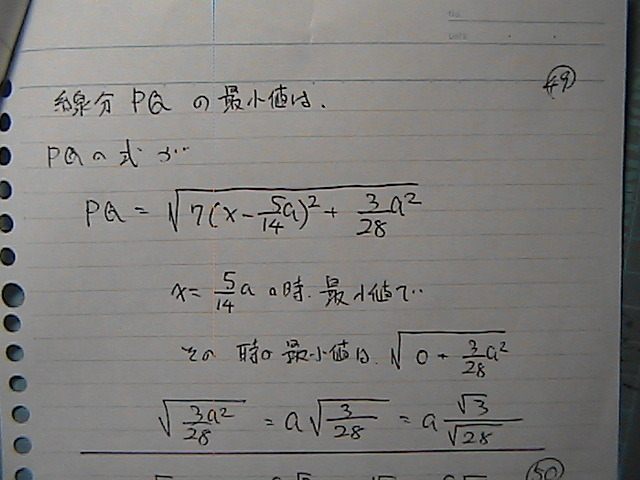 NO.
DATE
㊾
線分 PQ の最小値は、
PQの式が…
PQ = √(7(x - 5/14 a)² + 3/28 a²)
x = 5/14 a の時、最小値で…
その時の最小値は、√(0 + 3/28 a²)
√(3a²/28) = a√(3/28) = a √3/√28
㊿